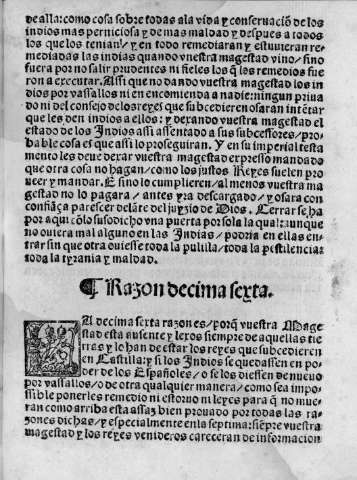 de alla: como cosa sobre todas a la vida y conseruaciō de los
indios mas perniciosa y de mas maldad y despues a todos
los que los tenian/ y en todo remediaran y estuuieran re-
mediadas las indias quando vuestra magestad vino/ sino
fuera por no salir prudentes ni fieles los q̄ los remedios fue
ron a executar. Assi que no dando vuestra magestad los in
dios por vassallos ni en encomienda a nadie: ningun priua
do ni del consejo de los reyes que subcedieren osarā intētar
que les den indios a ellos: y dexando vuestra magestad el
estado de los Indios assi assentado a sus subcessores/ pro-
bable cosa es que assi lo proseguiran. Y en su imperial testa
mento les deue dexar vuestra magestad expresso mandado
que otra cosa no hagan/ como los justos Reyes suelen pro
ueer y mandar. E sino lo cumplieren/ al menos vuestra ma
gestad no lo pagara/ antes yra descargado/ y osara con
confiāça parescer delāte del juyzio de Dios. Cerrar se ha
por aqui cō lo susodicho vna puerta por sola la qual: aunque
no ouiera mal alguno en las Indias/ podria en ellas en-
trar sin que otra ouiesse toda la pulilla/ toda la pestilencia:
toda la tyrania y maldad.
¶ Razon decima sexta.
LA decima sexta razon es/ porq̄ vuestra Mage
stad esta ausente y lexos siempre de aquellas tie
rras y lo han de estar los reyes que subcedieren
en Castilla: y si los Indios se quedassen en po-
der de los Españoles/ o se los diessen de nueuo
por vassallos/ o de otra qualquier manera/ como sea impo
ssible ponerles remedio ni estoruo ni leyes para q̄ no mue-
ran como arriba esta assaz bien prouado por todas las ra-
zones dichas/ y especialmente en la septima: siēpre vuestra
magestad y los reyes venideros careceran de informacion